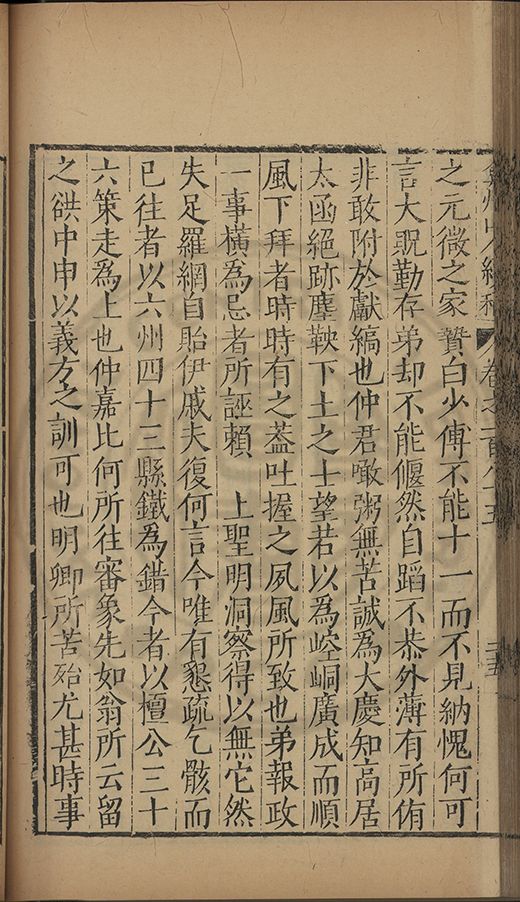 弇州山人續稿 卷之一百八十五 二十五
之元微之家贄白少傅不能十一而不見納愧何可
言大貺勤存弟却不能偃然自蹈不恭外薄有所侑
非敢附於獻縞也仲君噉粥無苦誠為大慶知高居
太函絕跡塵鞅下土之士望若以為崆峒廣成而順
風下拜者時時有之葢吐握之夙風所致也弟報政
一事橫為忌者所誣賴 上聖明洞察得以無它然
失足羅網自貽伊戚夫復何言今唯有懇疏乞骸而
已往者以六州四十三縣鐵為錯今者以檀公三十
六策走為上也仲嘉比何所往審象先如翁所云留
之鉷中申以義方之訓可也明卿所苦殆尤甚時事